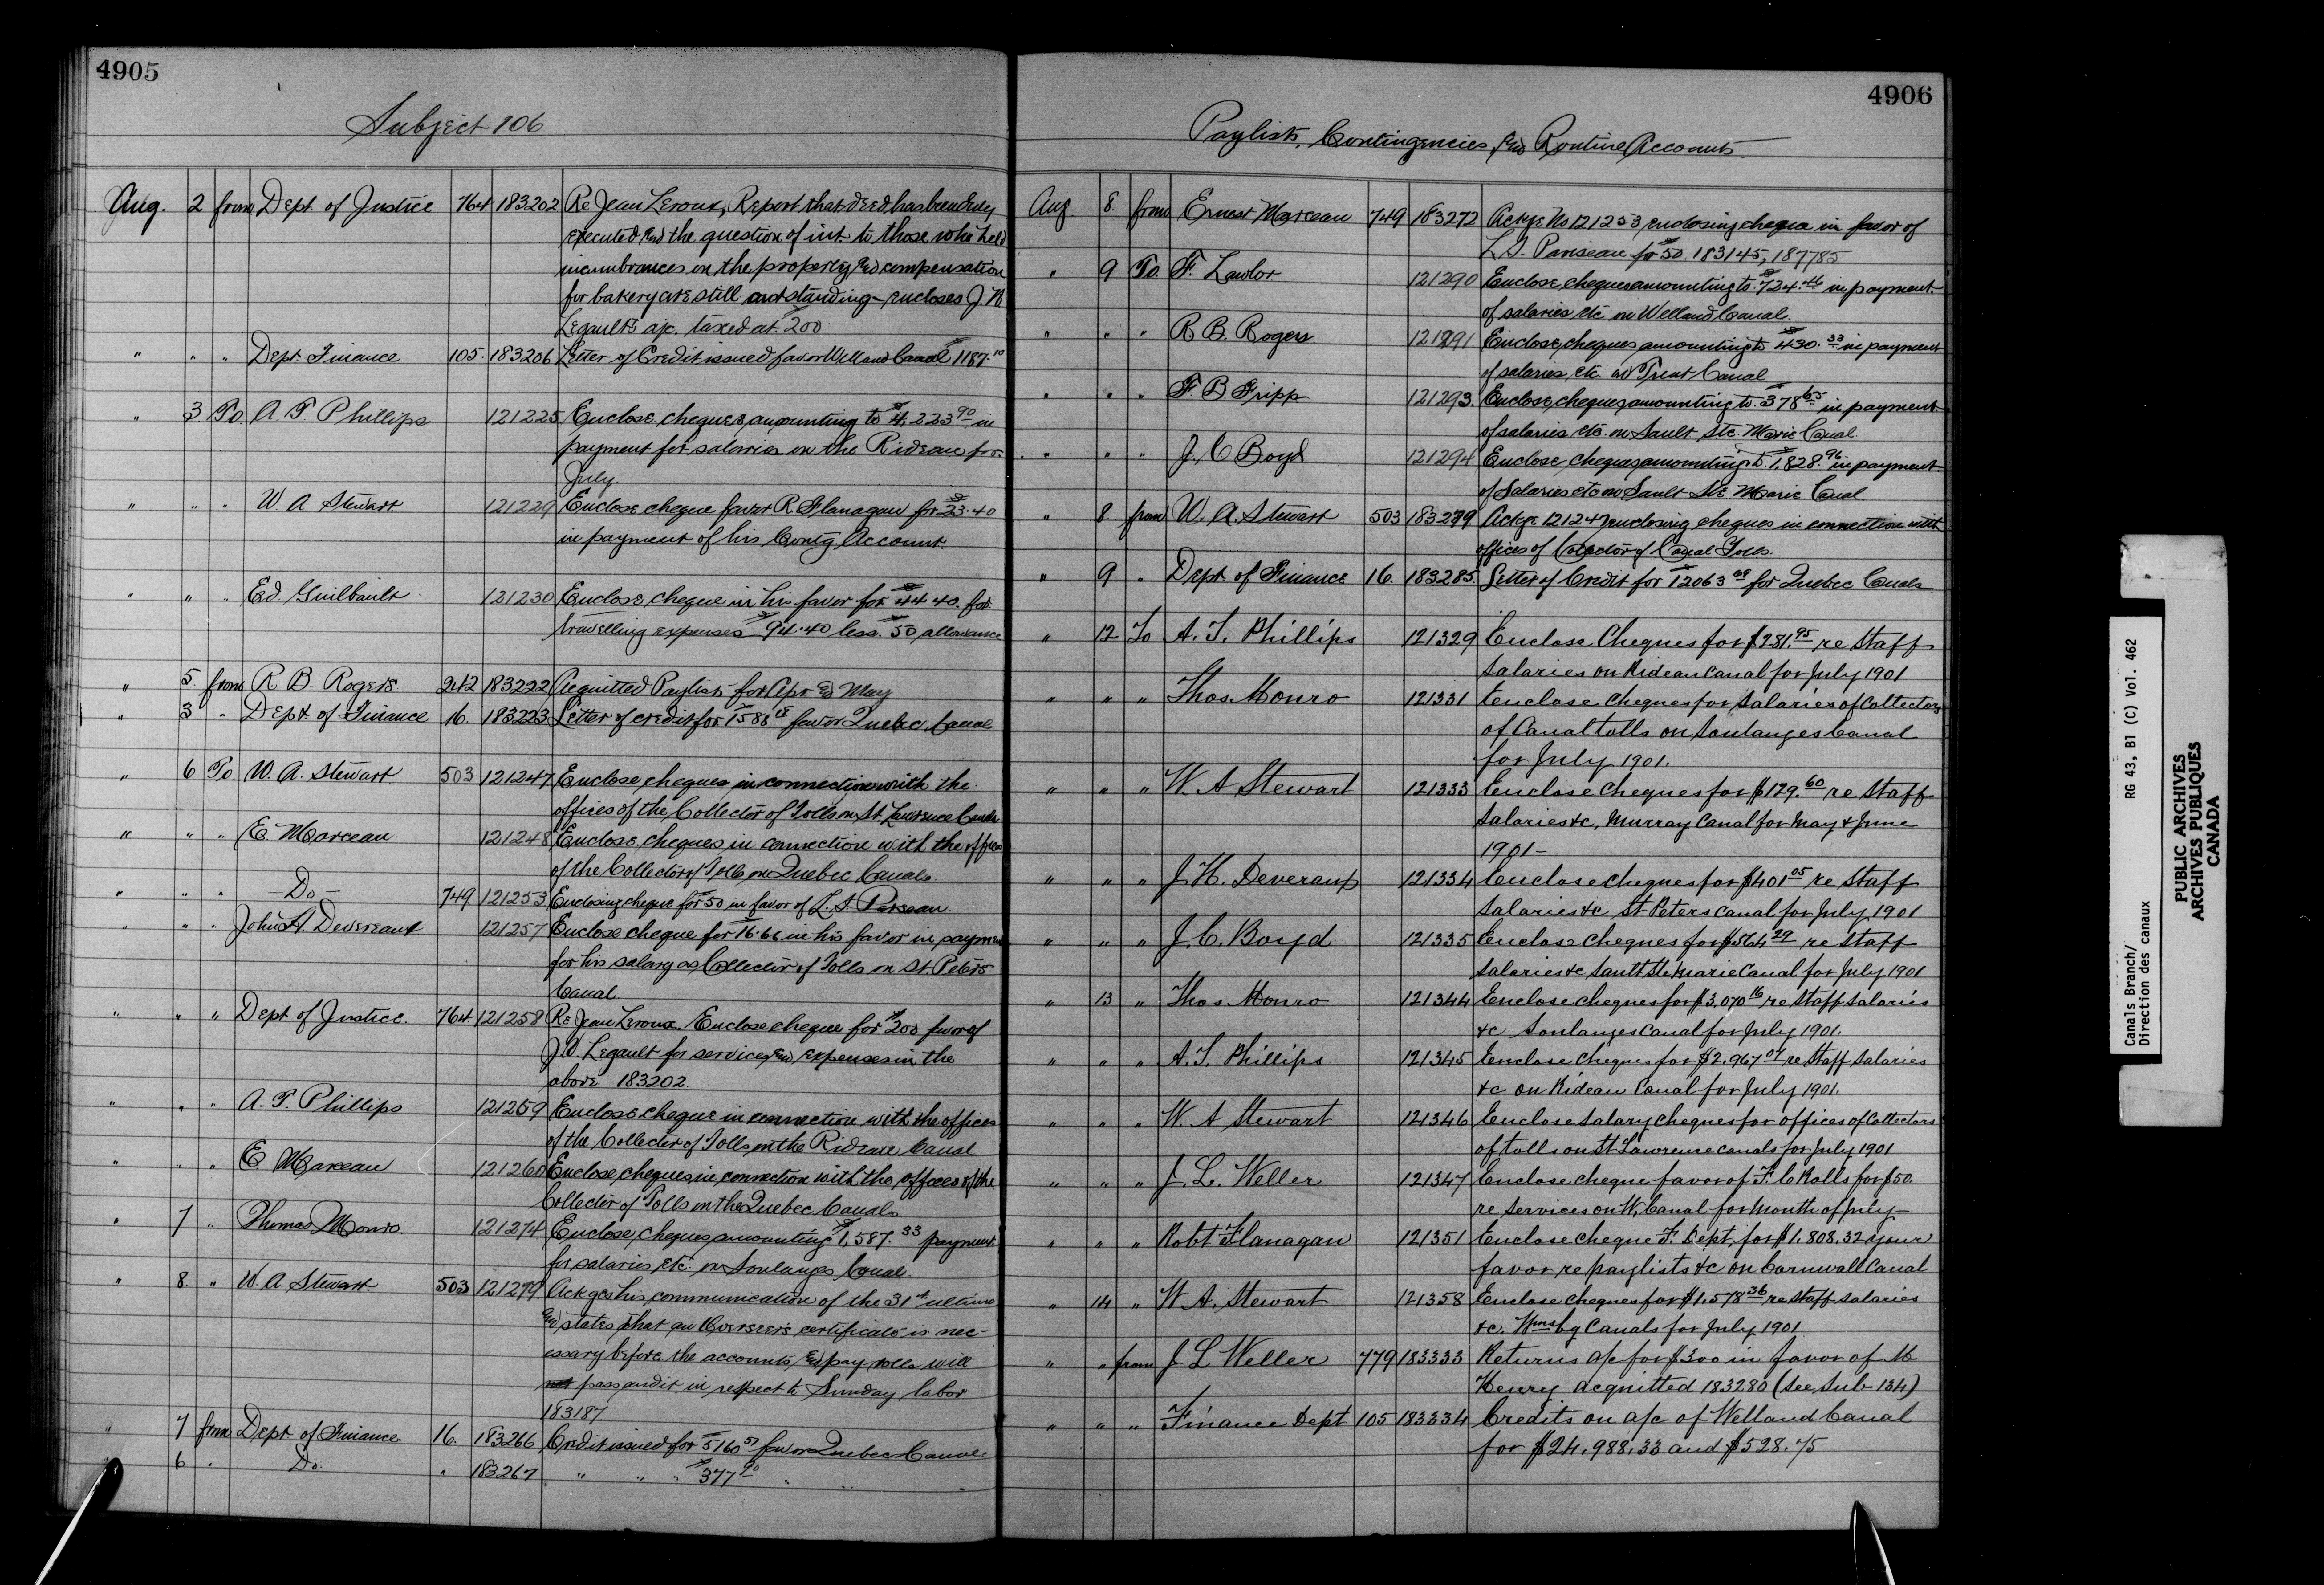 4905
Subject 106
Aug. 2 from Dept. of Justice 764 183202 Re Jean Leroux, Report that deed has been duly
executed and the question of int. to those who held
incumbrances on the property, and compensation
for bakery are still outstanding - encloses J. N
Legault's a/c. taxed at $200
" " " Dept. Finance 105. 183206 Letter of Credit issued favor Welland Canal $1187.10
" 3 To A T Phillips 121225 Enclose cheques, amounting to $4,223.90 in
payment for salaries on the Rideau for
July.
" " " W A Stewart 121229 Enclose cheque favor R. Flanagan for $23.40
in payment of his Contg. Account.
" " " Ed. Guilbault 121230 Enclose, cheque in his favor for $44.40. for
travelling expenses $94.40 less. $50 allowance
" 5. from R B. Rogers. 242 183222 Acquitted Paylists for Apr. and May
" 3 " Dept of Finance 16. 183223 Letter of credit for favor Quebec Canal
" 6 To W. A. Stewart. 503 121247 Enclose cheques in connection with the
offices of the Collector of Tolls on St Lawrence Canals
" " " E. Marceau. 121248 Enclose, cheques in connection with the offices
of the Collector of Tolls on Quebec Canals.
" " " - Do - 749 121253 Enclosing cheque for $50 in favor of L. A. Pariseau.
" " " John H. Devereaux 121257 Enclose cheque for 16.66 in his favor in payment
for his salary as Collector of Tolls on St. Peters
Canal
" " " Dept of Justice. 764 121258 Re Jean Leroux. Enclose cheque for $200 favor of
J. N. Legault for services, and expenses in the
above 183202.
" " " A. T. Phillips 121259 Enclose cheque in connection with the offices
of the Collector of Tolls on the Rideau Canal
" " " E Marceau 121260 Enclose, cheques in connection with the offices of the
Collector of Tolls on the Quebec Canals
" 7 " Thomas Monro. 121274 Enclose, cheques amounting $1,587.33 payment
for salaries, etc. on Soulanges Canal.
" 8. " W. A. Stewart. 503 121279 Ackges his communication of the 31st ultimo
and states that an Overseer's certificate is nec-
essary before the accounts, and pay rolls will
pass audit in respect to Sunday labor
183187
" 7 from Dept of Finance 16. 183266 Credit issued for $5160.57 favor Quebec Canals
" 6 " Do. " 183267 " " " $377.90 "
4906
Paylists, Contingencies, and Routine Accounts.
Aug. 8. from Ernest Marceau 749 183272 Ackge No 121253, enclosing cheque in favor of
L. A. Pariseau for $50. 183145, 187785
" 9 To F. Lawlor 121290 Enclose, cheques amounting to $724.46 in payment
of salaries etc on Welland Canal.
" " " R B. Rogers. 121291 Enclose, cheques amounting to $430.33 in payment
of salaries, etc. on Trent Canal
" " " F. B. Fripp 121293. Enclose, cheques, amounting to $378.65 in payment
of salaries etc. on Sault Ste. Marie Canal.
" " " J. C Boyd 121294 Enclose, cheques, amounting to $1,828.96 in payment
of Salaries etc on Sault Ste Marie Canal
" 8 from W. A. Stewart 503 183279 Ackge 121247 enclosing cheques in connection with
offices of Collector of Canal Tolls.
" 9 " Dept of Finance 16. 183285. Letter of Credit for $12063.09 for Quebec Canals
" 12 To A. T. Phillips 121329 Enclose Cheques for $281.95 re Staff
Salaries on Rideau Canal for July 1901
" " " Thos. Monro 121331 Enclose Cheques for Salaries of Collectors
of Canal tolls on Soulanges Canal
for July 1901.
" " " W. A Stewart 121333 Enclose Cheques for $129.60 re Staff
Salaries &c, Murray Canal for May & June
1901-
" " " J. H. Deveraux 121334 Enclose cheques for $401.05 re Staff
Salaries &c St Peters Canal for July 1901
" " " J. C. Boyd 121335 Enclose Cheques for $564.29 re Staff
Salaries &c Sault Ste Marie Canal for July 1901
" 13 " Thos. Monro 121344 Enclose cheques for $3,070.16 re Staff Salaries
&c Soulanges Canal for July 1901.
" " " A. T. Phillips 121345 Enclose Cheques for $2,967.07 re Staff Salaries
&c on Rideau Canal for July 1901.
" " " W. A Stewart 121346 Enclose salary cheques for offices of Collectors
of tolls on St Lawrence canals for July 1901
" " " J. L. Weller 121347 Enclose cheque favor of F. C Ralls for $50.
re services on W, Canal for month of July-
" " " Robt Flanagan 121351 Enclose Cheque F. Dept, for $1,808.32 your
favor re paylists &c on Cornwall Canal
" 14 " W A. Stewart 121358 Enclose cheques for $1,578.36 re staff salaries
&c. Wmsbg Canals for July 1901.
" " from J L Weller 779 183333 Returns a/c for $300 in favor of M
Henry acquitted 183280 (See Sub-134)
" " " Finance Dept 105 183334 Credits on a/c of Welland Canal
for $24,988.33 and $528.75
Canals Branch/
Direction des canaux
RG 43, B1 (C) Vol. 462
PUBLIC ARCHIVES
ARCHIVES PUBLIQUES
CANADA